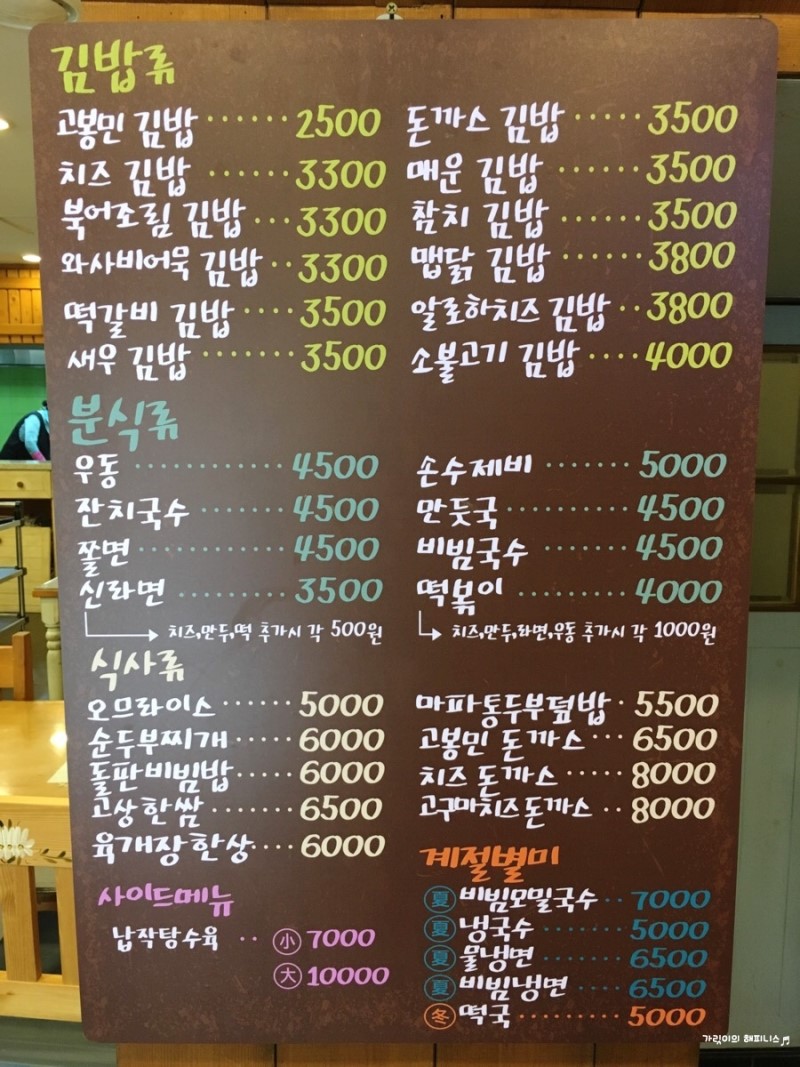 김밥류
고봉민 김밥 ······ 2500
치즈 김밥 ······ 3300
북어조림 김밥 ··· 3300
와사비어묵 김밥 ·· 3300
떡갈비 김밥 ···· 3500
새우 김밥 ······· 3500
돈까스 김밥 ····· 3500
매운 김밥 ······ 3500
참치 김밥 ······ 3500
맵닭 김밥 ······ 3800
알로하치즈 김밥 ·· 3800
소불고기 김밥 ···· 4000
분식류
우동 ············ 4500
잔치국수 ········ 4500
쫄면 ············ 4500
신라면 ·········· 3500
치즈,만두,떡 추가시 각 500원
손수제비 ······· 5000
만둣국 ·········· 4500
비빔국수 ········ 4500
떡볶이 ·········· 4000
치즈,만두,라면,우동 추가시 각 1000원
식사류
오므라이스 ······ 5000
순두부찌개 ····· 6000
돌판비빔밥 ····· 6000
고상한쌈 ······· 6500
육개장한상 ···· 6000
마파통두부덮밥 · 5500
고봉민 돈까스 ··· 6500
치즈 돈까스 ····· 8000
고구마치즈돈까스 ·· 8000
사이드메뉴
납작탕수육 ·· 小 7000
大 10000
계절별미
夏 비빔모밀국수 ·· 7000
夏 냉국수 ······· 5000
夏 물냉면 ······ 6500
夏 비빔냉면 ···· 6500
冬 떡국 ········· 5000
가릿이의 해피니스♬